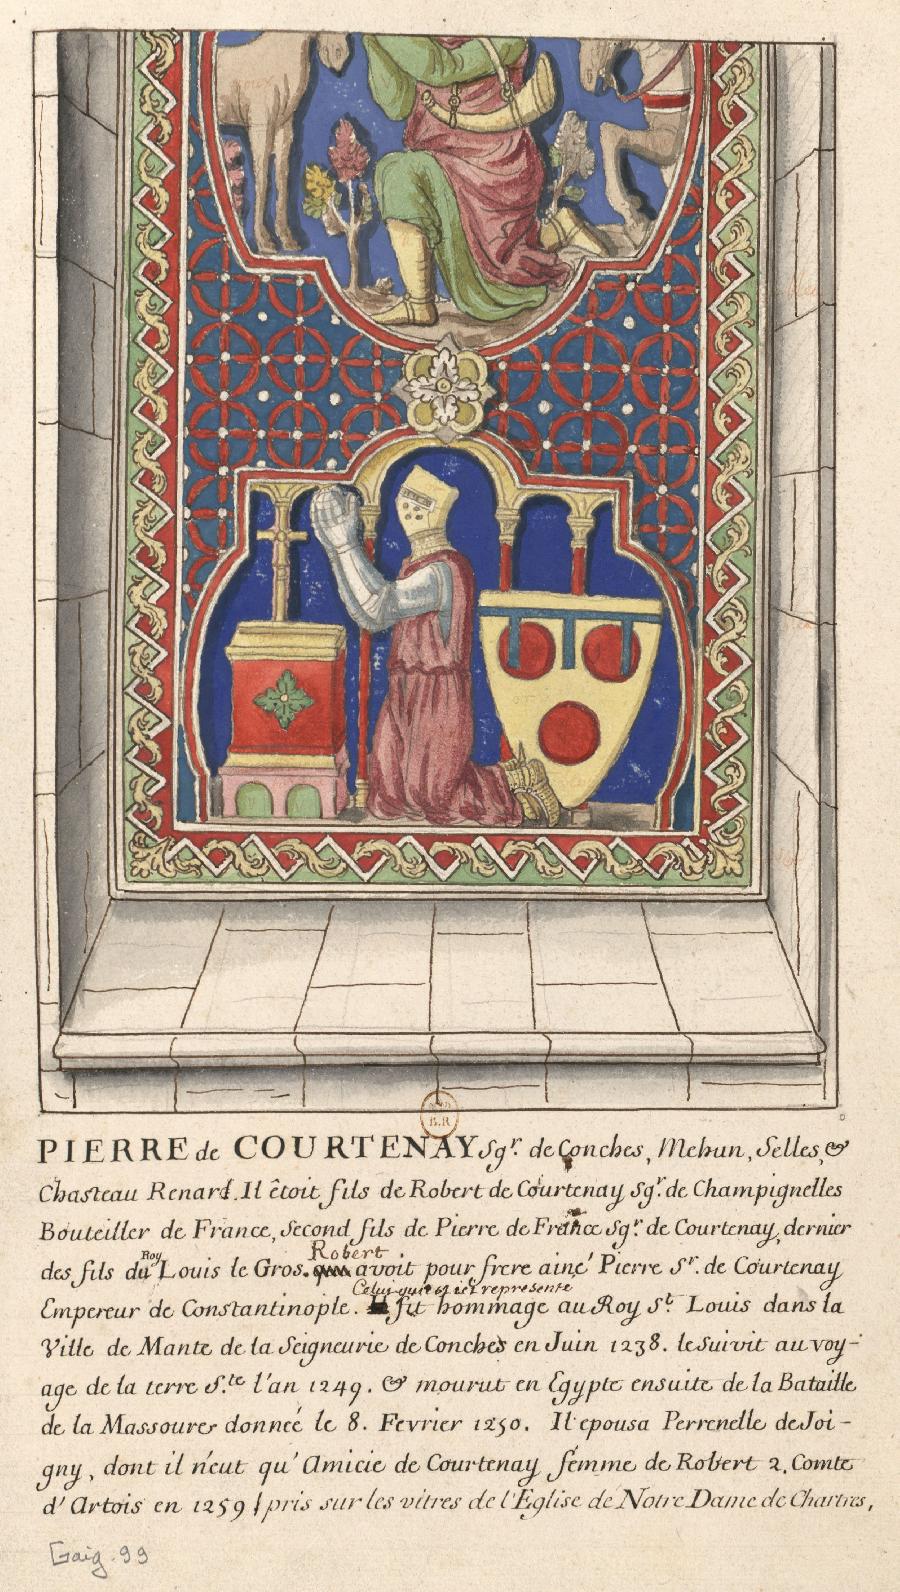 PIERRE de COURTENAY Sgr. de Conches, Mehun, Selles, &
Chasteau Renard. Il êtoit fils de Robert de Courtenay Sgr. de Champignelles
Bouteiller de France, second fils de Pierre de France Sgr. de Courtenay, dernier
des fils du Roy Louis le Gros. Robert avoit pour frere ainé Pierre Sr. de Courtenay
Empereur de Constantinople. Celui qui est icÿ represente fit hommage au Roy St. Louis dans la
Ville de Mante de la Seigneurie de Conches en Juin 1238. le suivit au voy-
age de la terre S.te l'an 1249. & mourut en Egypte ensuite de la Bataille
de la Massoure donneé le 8. Fevrier 1250. Il epousa Perrenelle de Joi-
gny, dont il n'eut qu' Amicie de Courtenay femme de Robert 2. Comte
d' Artois en 1259 pris sur les vitres de l'Eglise de Notre Dame de Chartres,
Gaig. 99
B.R